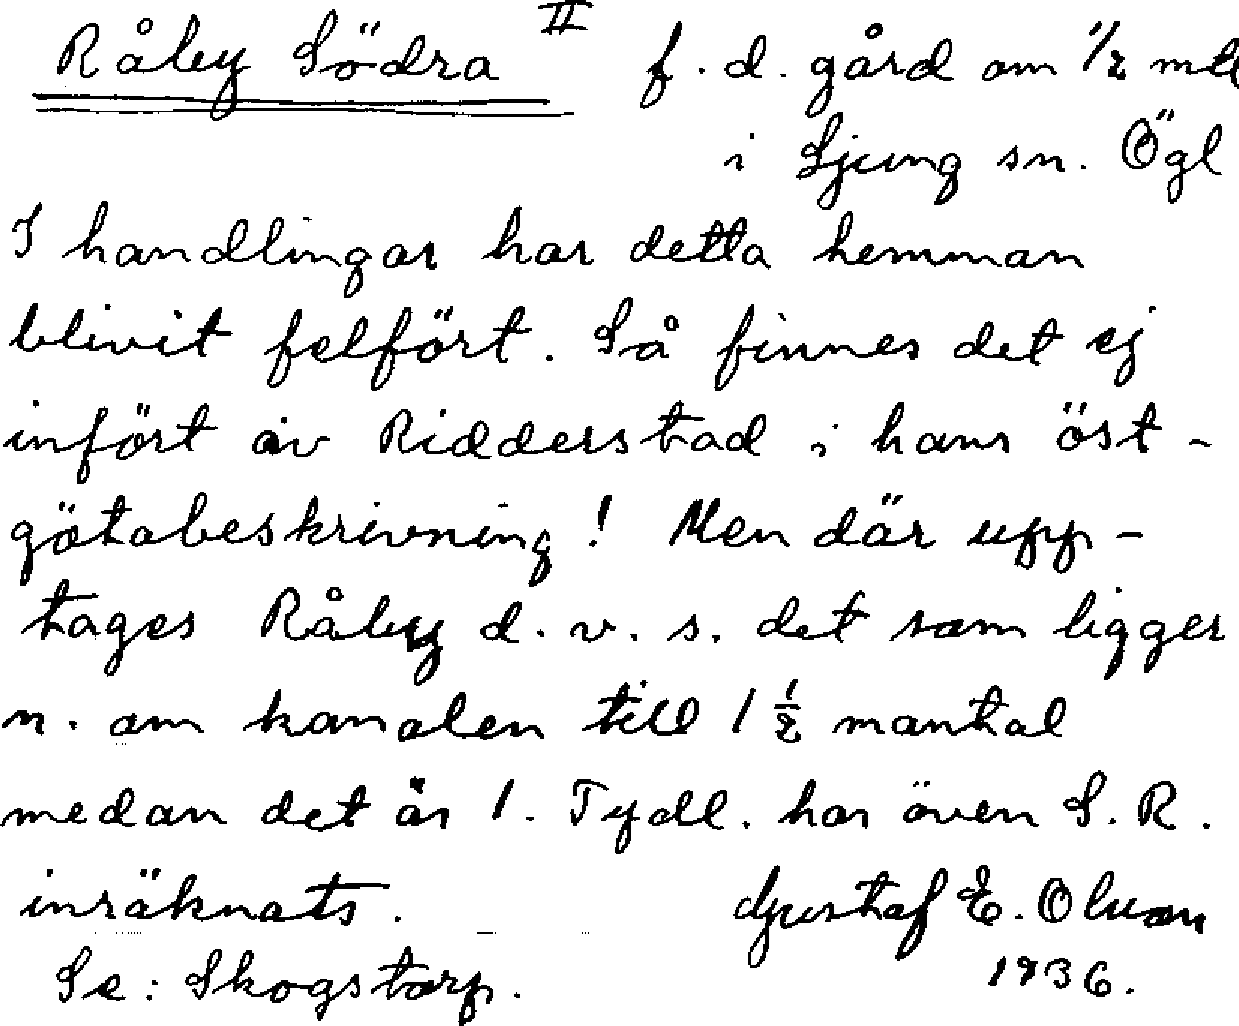 Råby Södra II f. d. gård om 1/2 mtl
i Ljung sn. Ögl
I handlingar har detta hemman
blivit felfört. Så finnes det ej
infört av Ridderstad i hans öst-
götabeskrivning! Men där upp-
tages Råby d. v. s. det som ligger
n. om kanalen till 1 1/2 mantal
medan det är 1. Tydl. har även S. R.
inräknats.
Gustaf E. Olsson
Se: Skogstorp.
1936.